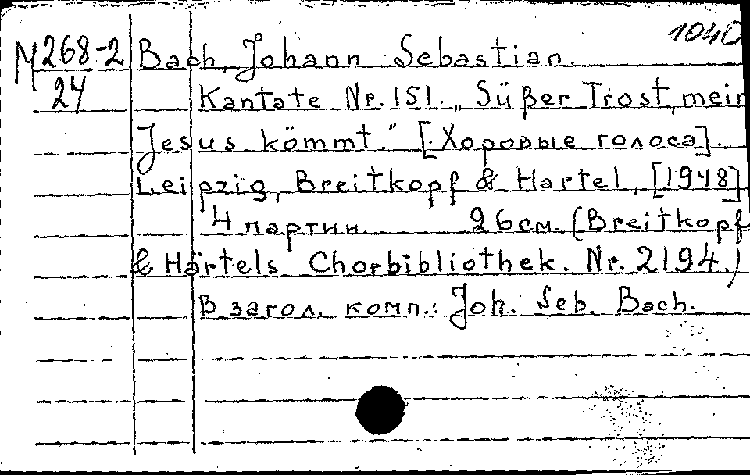 1040
М268-2 Bach, Johann Sebastian.
24 Kantate Nr. 151. „Süßer Trost, mein
Jesus kömmt." [Хоровые голоса].
Leipzig, Breitkopf & Hartel, [1948].
4 партии. 26см. (Breitkopf
& Härtels Chorbibliothek. Nr. 2194.)
В загол. комп.: Joh. Seb. Bach.